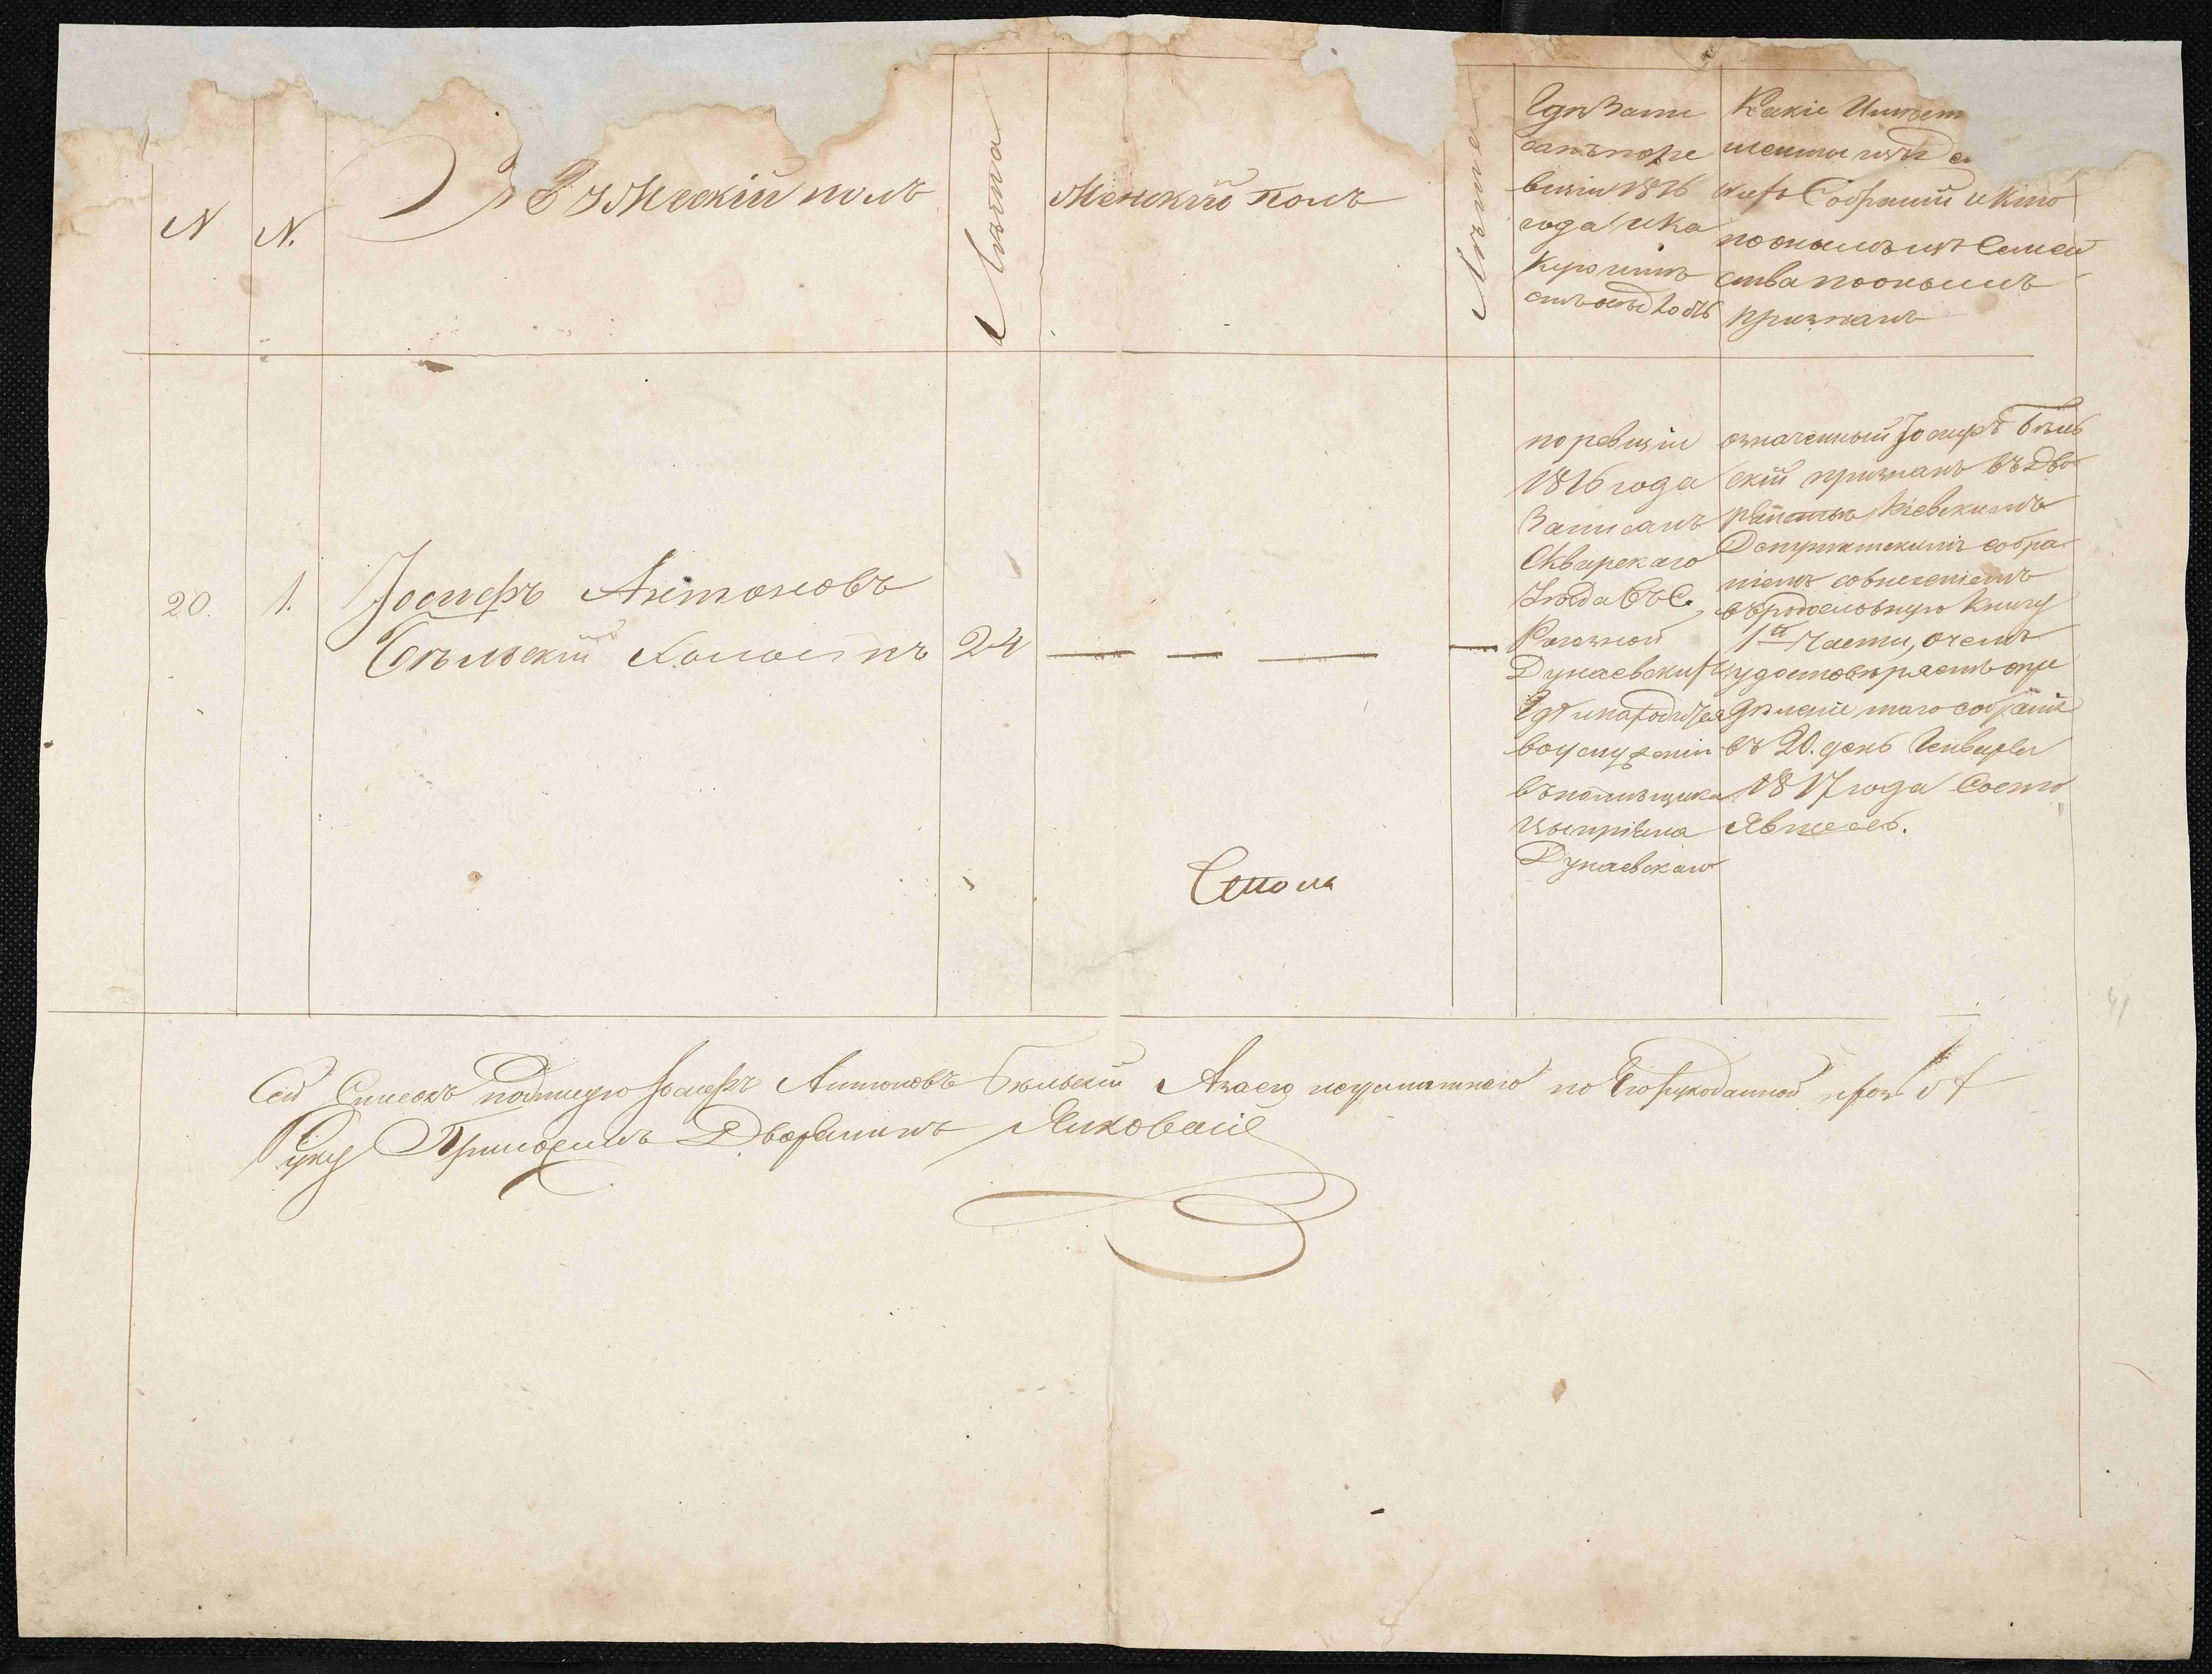 N
N.
Мужескій полъ
Лѣта
Женскій полъ
Лѣта
Гдѣ Запи
санъ по ре
визіи 1816
года и ка
Какіе Имѣет
Собраній и кто
по онымъ изъ Семей
ства по онымъ
признанъ
20.
1.
Іосифъ Антоновъ
Бѣльскій Холостъ
24
по ревизіи
1816 года
Записанъ
Сквирскаго
Уѣзда въ С.
Дунаевскихъ
Гдѣ и находится
в услуженіи
въ помѣщика
Ципріяна
Дунаевскаго
означенный Іосифъ Бѣль
скій признанъ въ Дво
рянствѣ Кіевскимъ
Депутатскимъ собра
ніемъ со внесеніемъ
въ родословную Книгу
1й Части, о чемъ
удостовѣряетъ опре
дѣленіе того собранія
въ 20. день Генваря
1817 года Состо
явшееся.
Сей Списокъ подаетъ Іосифъ Антоновъ Бѣльскій А за его неграмотнаго по Его рукоданной прозбѣ
Руку Приложилъ Дворянинъ